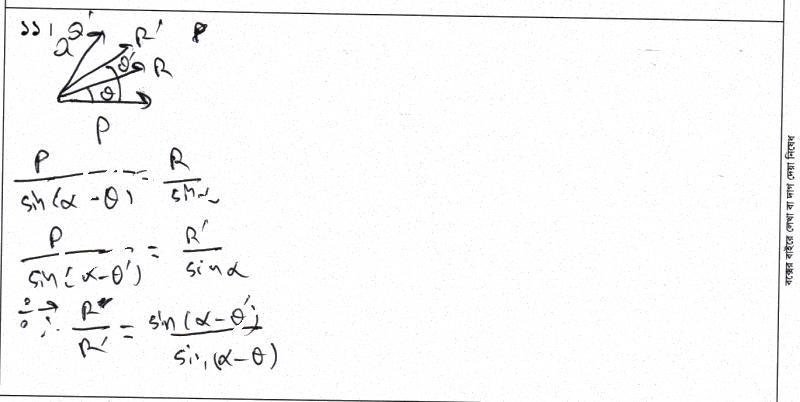 ১১।
Q Q' R' P
θ' R
θ
P
P / sin(α - θ) = R / sinα
P / sin(α-θ') = R' / sinα
÷ → ∴ R / R' = sin(α-θ') / sin(α-θ)
বক্সের বাইরে লেখা বা দাগ দেয়া নিষেধ